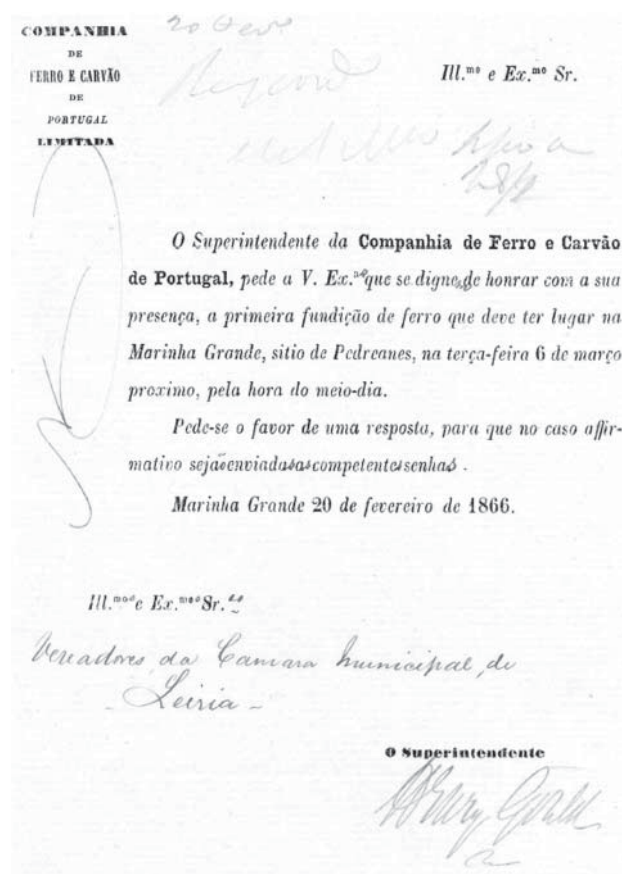 COMPANHIA
DE
FERRO E CARVÃO
DE
PORTUGAL
LIMITADA
20 Fev.º
Ill.mo e Ex.mo Sr.
O Superintendente da Companhia de Ferro e Carvão
de Portugal, pede a V. Ex.as que se digne de honrar com a sua
presença, a primeira fundição de ferro que deve ter lugar na
Marinha Grande, sitio de Pedreanes, na terça-feira 6 de março
proximo, pela hora do meio-dia.
Pede-se o favor de uma resposta, para que no caso affir-
mativo sejão enviadas as competentes senhas.
Marinha Grande 20 de fevereiro de 1866.
Ill.mos e Ex.mos Sr.es
Vereadores da Camara Municipal de
- Leiria -
O Superintendente